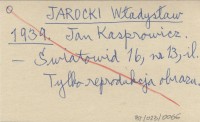 JAROCKI Władysław
1934. Jan Kasprowicz.
– Światowid 16, nr 13, il.
Tylko reprodukcja obrazu.